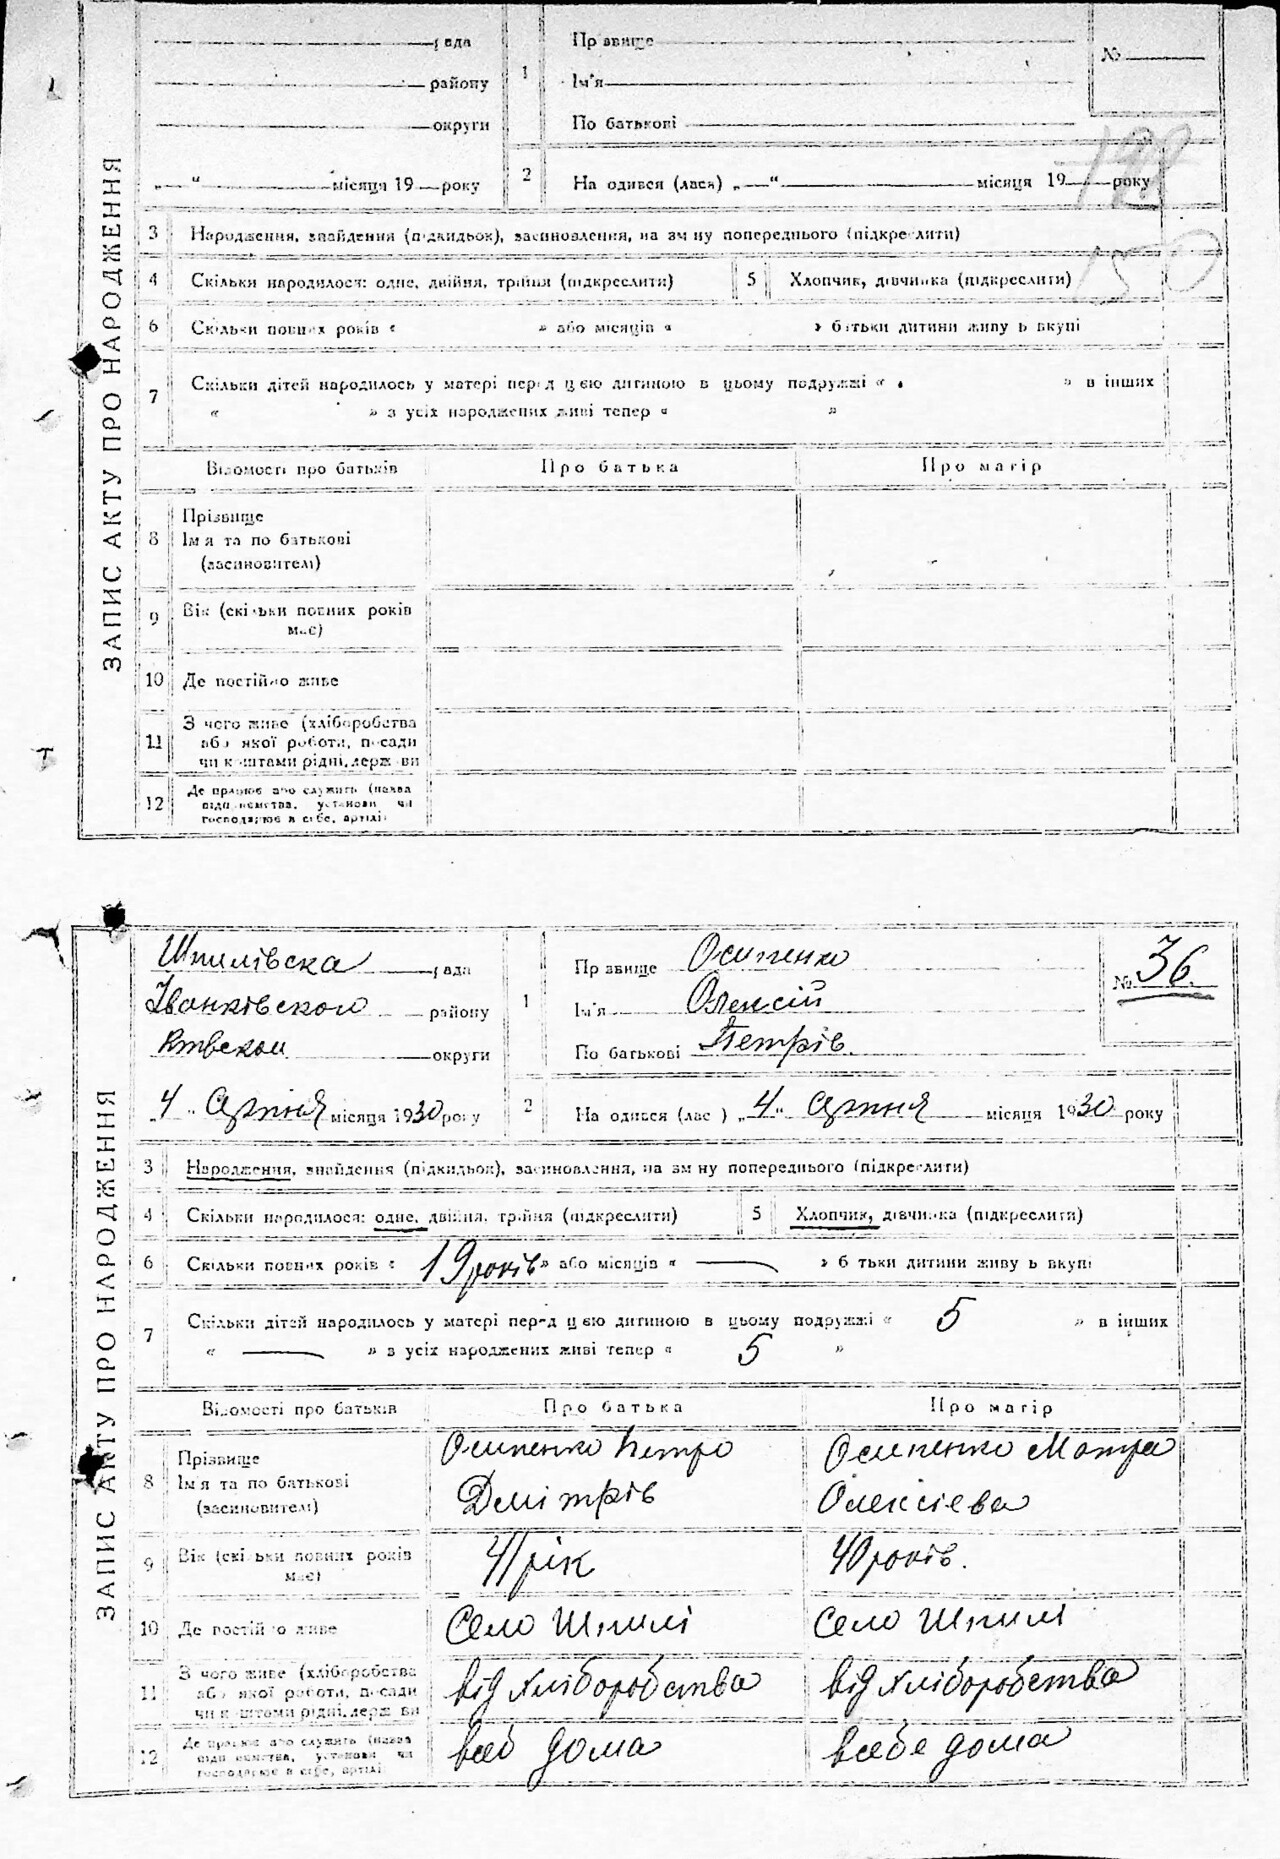 рада
району
округи
„—“ місяця 19 року
1
Прізвище
Ім'я
По батькові
№
2
На одився (лася) „—“ місяця 19 року
150
ЗАПИС АКТУ ПРО НАРОДЖЕННЯ
3 Народження, знайдення (підкидьок), засиновлення, на зм ну попереднього (підкреслити)
4 Скільки народилося: одне, двійня, трійня (підкреслити)
5 Хлопчик, дівчинка (підкреслити)
6 Скільки повних років « » або місяців « » батьки дитини живу ь вкупі
7 Скільки дітей народилось у матері перед цією дитиною в цьому подружжі « » в інших
« » з усіх народжених живі тепер « »
Відомості про батьків Про батька Про матір
8 Прізвище
Ім'я та по батькові
(засиновителі)
9 Вік (скільки повних років
має)
10 Де постійно живе
11 З чого живе (хліборобства
або якої роботи, посади
чи коштами рідні, держави
12 Де працює або служить (назва
підприємства, установи чи
господарює в себе, артілі
Шпилівска рада
Іванківського району
округи
„4“ Серпня місяця 1930 року
1
Пр звище Осипенко
Ім'я Олексій
По батькові Петрів
№ 36.
2
На одився (лас ) „4“ Серпня місяця 1930 року
ЗАПИС АКТУ ПРО НАРОДЖЕННЯ
3 Народження, знайдення (підкидьок), засиновлення, на зм ну попереднього (підкреслити)
4 Скільки народилося: одне, двійня, трійня (підкреслити)
5 Хлопчик, дівчинка (підкреслити)
6 Скільки повних років « 19 років » або місяців « — » б тьки дитини живу ь вкупі
7 Скільки дітей народилось у матері перед цією дитиною в цьому подружжі « 5 » в інших
« — » з усіх народжених живі тепер « 5 »
Відомості про батьків Про батька Про матір
8 Прізвище Осипенко Петро Осипенко Мотря
Ім'я та по батькові Дмітрів Олексієва
(засиновителі)
9 Вік (скільки повних років 41 рік 40 років.
має)
10 Де постійно живе Село Шпилі Село Шпилі
11 З чого живе (хліборобства
або якої роботи, посади від хліборобства від хліборобства
чи коштами рідні, держави
12 Де працює або служить (назва
підприємства, установи чи всеб дома всебе дома
господарює в себе, артілі